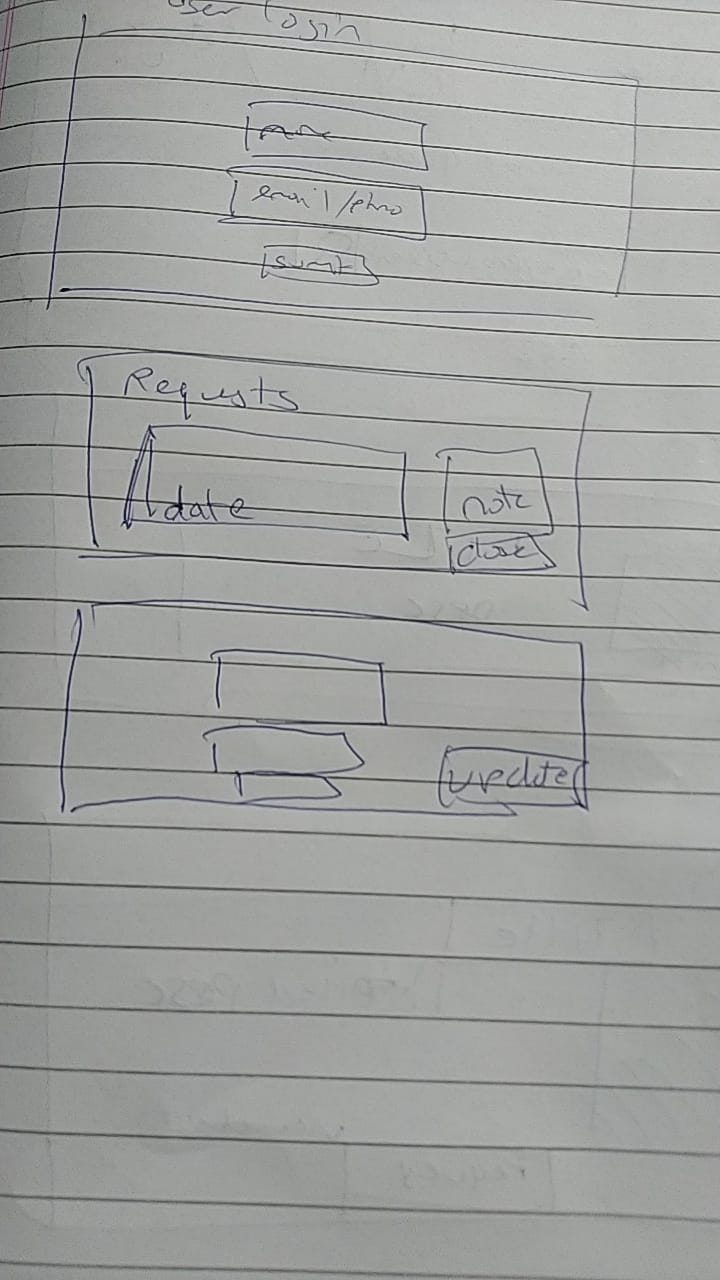 user login
name
email/phno
submit
Requests
date
note
close
update